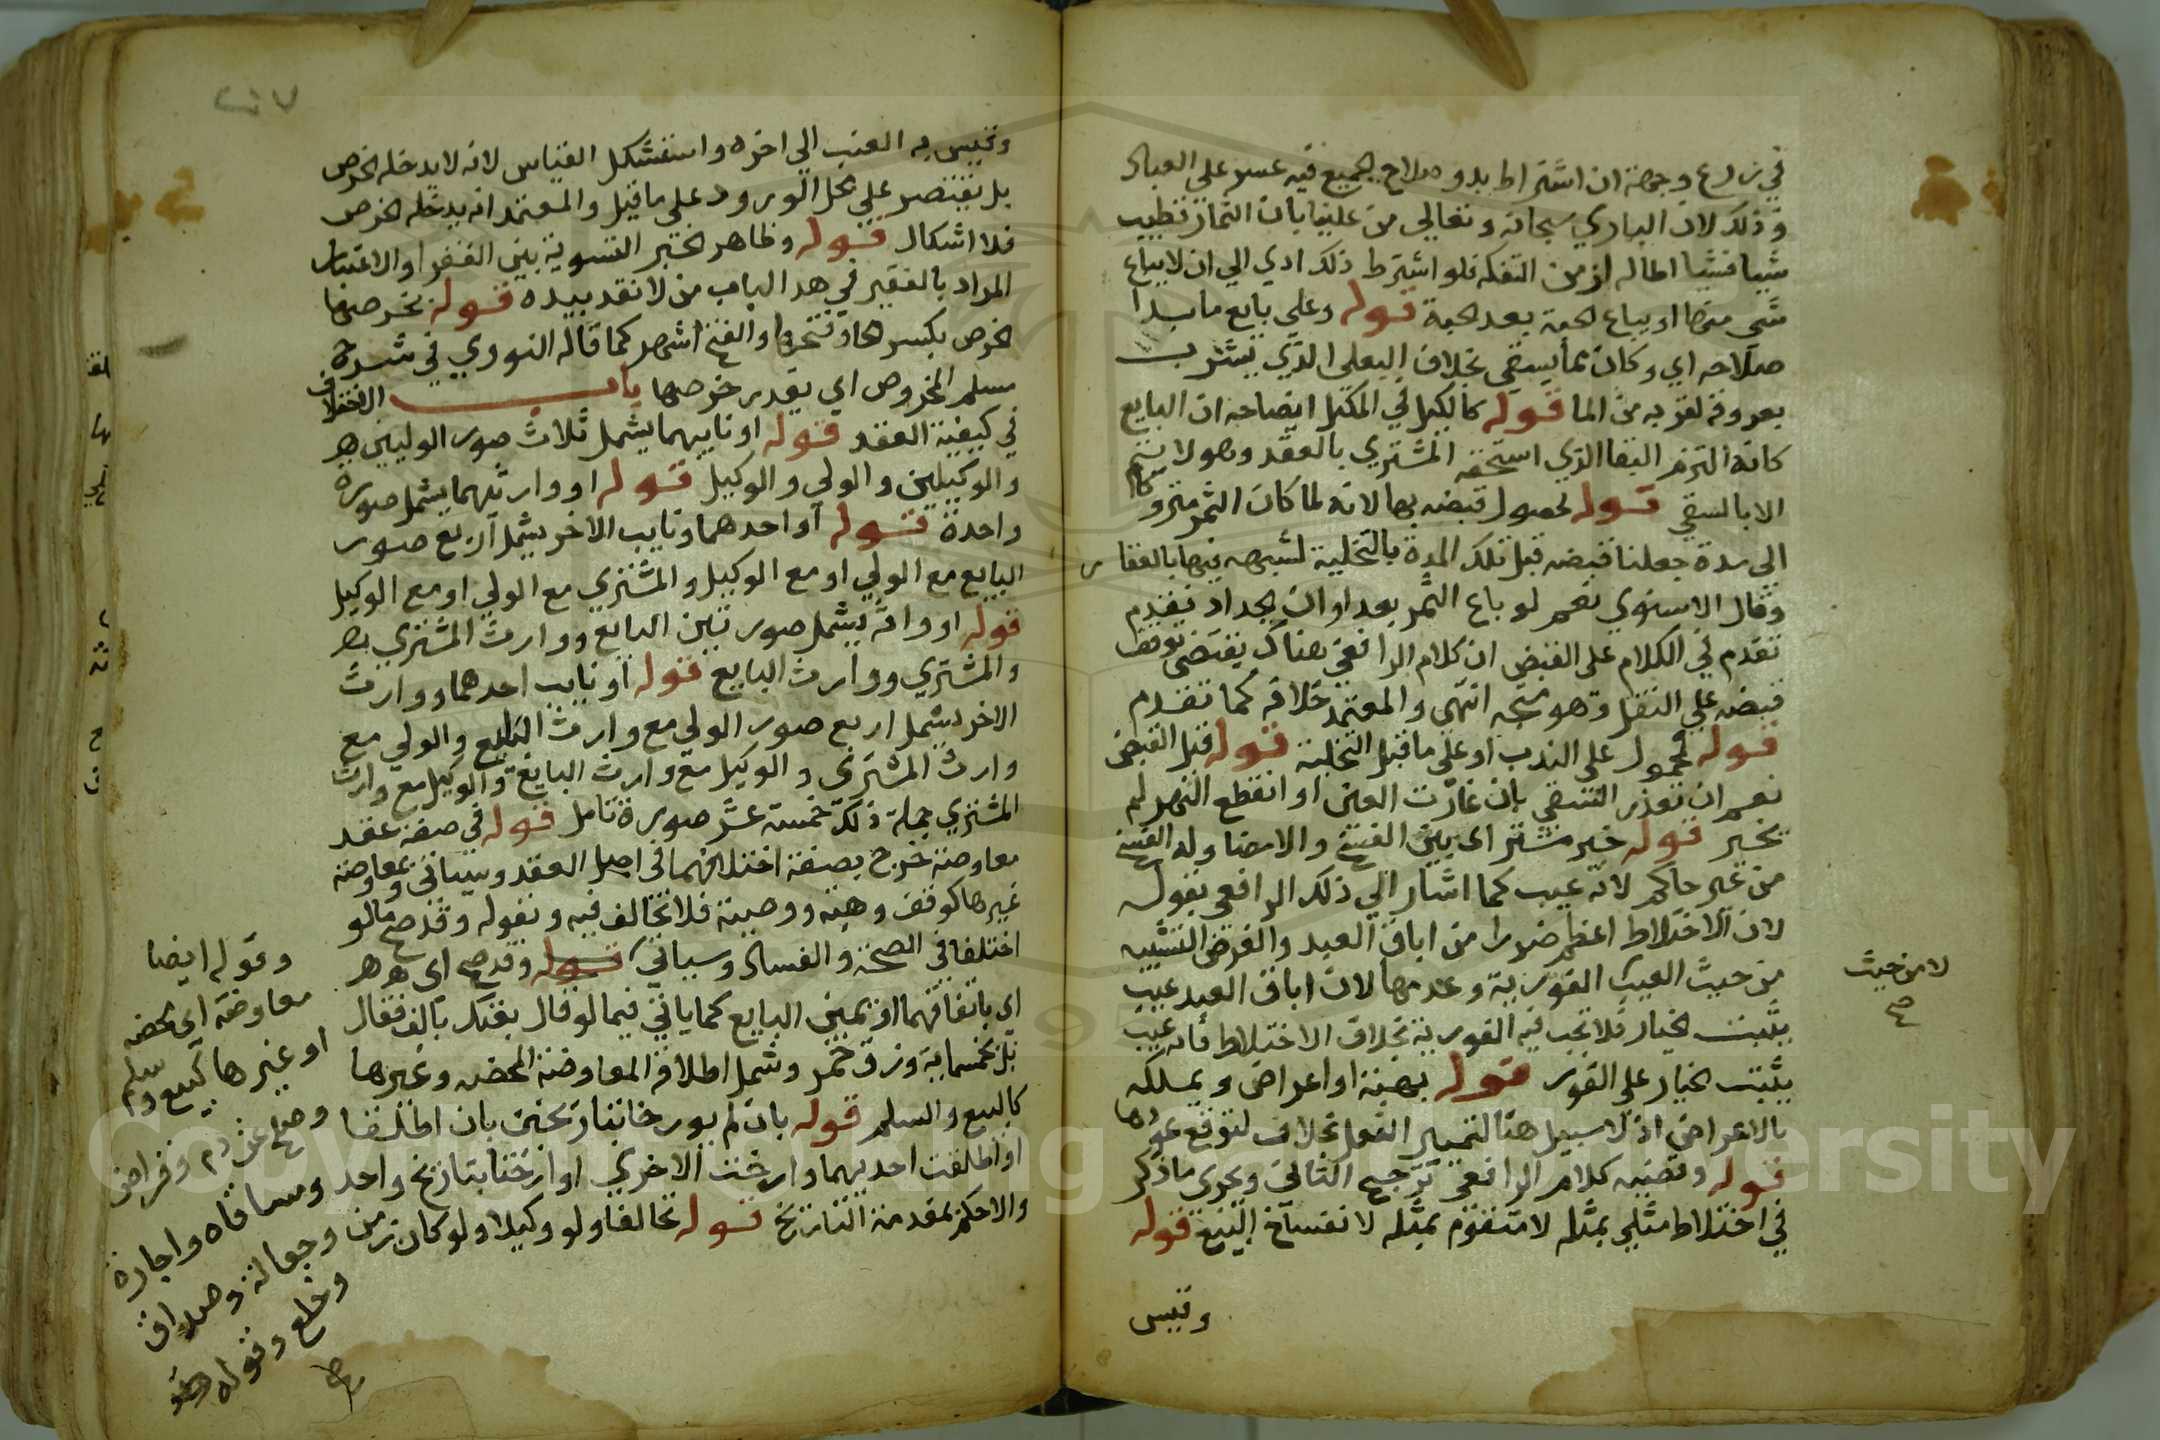 في زرع وجهته ان اشتراط بدو صلاح الجميع فيه عسر على العباد
وذلك لان الباري سبحانه وتعالى من علينا بان الثمار تطيب
شيا فشيا اطالة لزمن التفكه فلو اشترط ذلك ادي الي ان لا يباع
شي منها او يباع الحبة بعد الحبة قوله وعلى بايع ما بدا
صلاحه اي وكان مما يسقي بخلاف البعلي الذي يشرب
بعروقه لقربه من الما قوله كالكيل في المكيل ايضاحه ان البايع
كانه التزم البقا الذي استحقه المشتري بالعقد وهو لا يتم
الا بالسقي قوله لحصول قبضه بها لانه لما كان الثمر متروكا
الى مدة جعلنا قبضه قبل تلك المدة بالتخلية لشبهه فيها بالعقار
وقال الاسنوي نعم لو باع الثمر بعد اوان الجداد فيقدم
تقدم في الكلام على القبض ان كلام الرافعي هناك يقتضي توقف
قبضه على النقل وهو متجه انتهى والمعتمد خلافه كما تقدم
قوله محمول على الندب او على ما قبل التخلية قوله قبل القبض
نعم ان تعذر السقي بان غارت العين او انقطع النهر لم
يخير قوله خير مشتر اي بين الفسخ والامضا وله الفسخ
من غير حاكم لانه عيب كما اشار الي ذلك الرافعي بقوله
لان الاختلاط اعظم ضررا من اباق العبد والغرض التشبيه
من حيث العيب الفورية وعدمها لان اباق العبد عيب
يثبت الخيار فلا تجب فيه الفورية بخلاف الاختلاط فانه عيب
يثبت الخيار على الفور قوله بهبة او اعراض ويملكه
بالاعراض اذ لا سبيل هنا لتمييز النعل بخلاف لتوقع عودها
قوله وقضية كلام الرافعي ترجيح الثاني ويجري ما ذكر
في اختلاط مثلي بمثله لا متقوم بمثله لانفساخ البيع قوله
وقيس
لا من حيث
صح
وقيس به العنب الي اخره واستشكل القياس لانه لا يدخله الخرص
بل يقتصر على محل الورود على ما قيل والمعتمد انه يدخله الخرص
فلا اشكال قوله وظاهر الخبر التسوية بين الفقرا والاغنيا
المراد بالفقير في هذا الباب من لا نقد بيده قوله بخرصها
الخرص بكسر الخا وفتحها والفتح اشهر كما قاله النووي في شرح
مسلم المخروص اي يقدر خرصها باب الاختلاف
في كيفية العقد قوله او نايبهما يشمل ثلاث صور الوليين
والوكيلين والولي والوكيل قوله او وارثهما يشمل صورة
واحدة قوله او احدهما ونايب الاخر يشمل اربع صور
البايع مع الولي او مع الوكيل والمشتري مع الولي او مع الوكيل
قوله او وارثه يشمل صورتين البايع ووارث المشتري
والمشتري ووارث البايع قوله او نايب احدهما ووارث
الاخر يشمل اربع صور الولي مع وارث البايع والولي مع
وارث المشتري والوكيل مع وارث البايع والوكيل مع وارث
المشتري جملة ذلك خمسة عشر صورة تامل قوله في صفة عقد
معاوضة خرج بصفة اختلافهما في اصل العقد وسياتي وبمعاوضة
غيرها كوقف وهبة ووصية فلا تخالف فيه وبقوله وقد صح ما لو
اختلفا في الصحة والفساد وسياتي قوله وقد صح اي
اي باتفاقهما او يمين البايع كما ياتي فيما لو قال بعتك بالف فقال
بل بخمسماية وزق خمر وشمل اطلاقه المعاوضة المحضه وغيرها
كالبيع والسلم قوله بان لم يورخا بتاريخين بان اطلقتا
او اطلقت احديهما وارخت الاخري او ارختا بتاريخ واحد
والا حكم بمقدمة التاريخ قوله تخالفا ولو وكيلا ولو كان زمن
وقوله ايضا
معاوضة اي محضه
او غيرها كبيع وسلم
وصلح عن دم وقراض
ومساقاه واجارة
وجعالة وصداق
وخلع وقوله
صح
Copyright © King Saud University